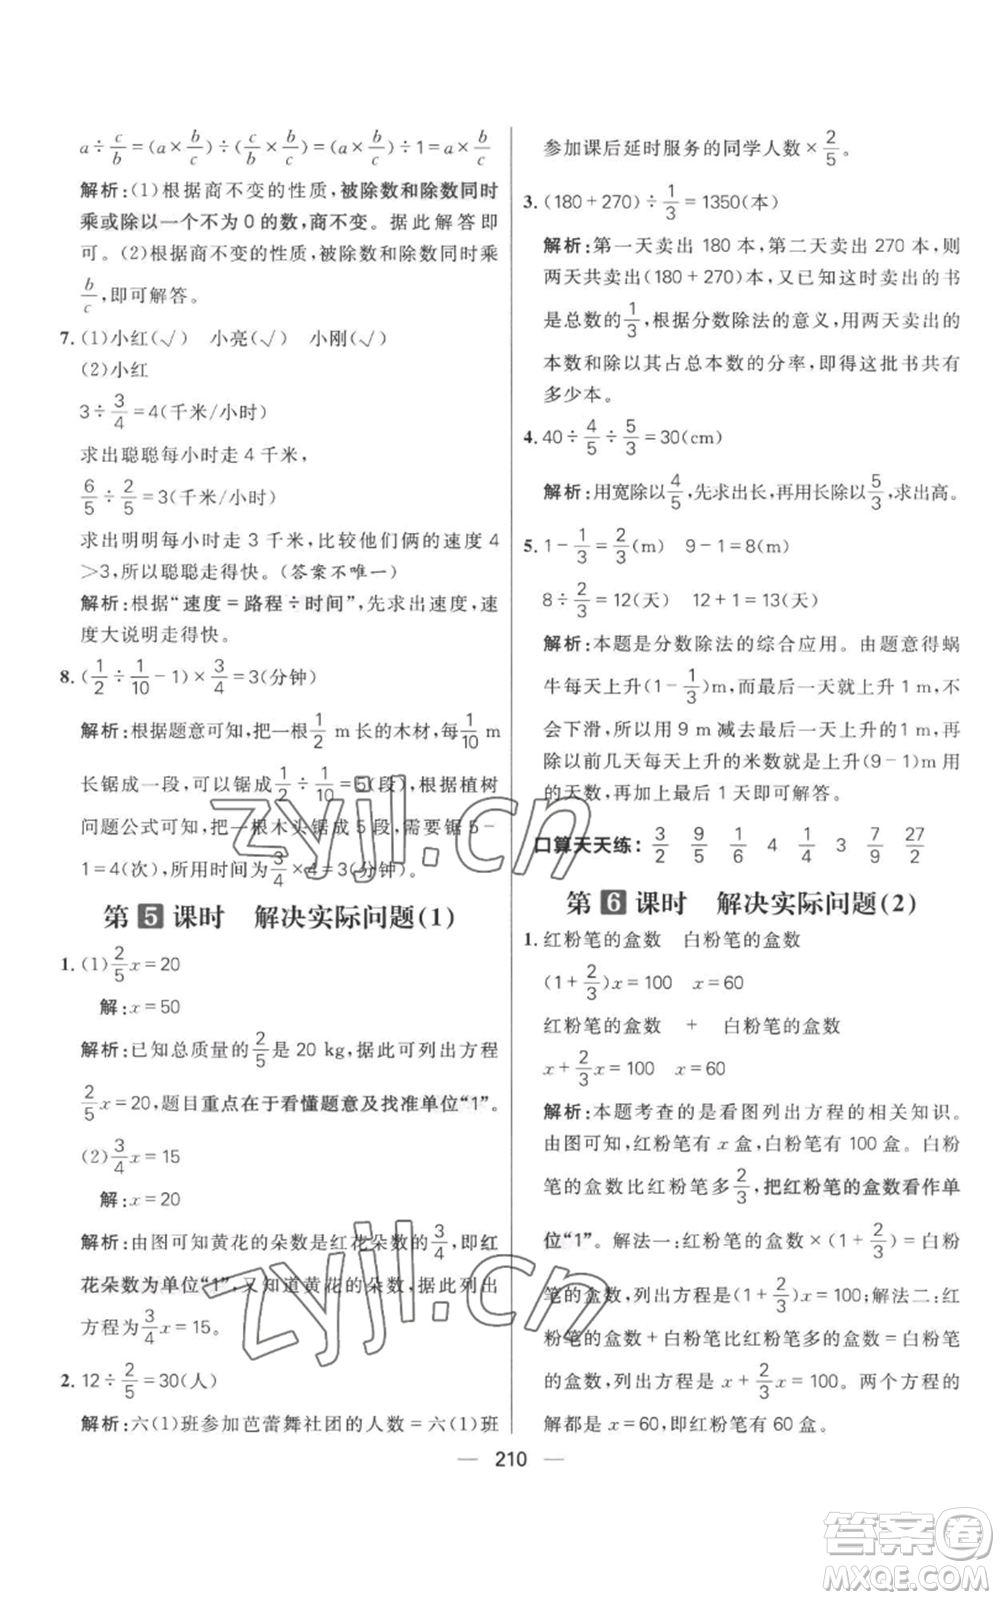 a÷c/b=(a×b/c)÷(c/b×b/c)=(a×b/c)÷1=a×b/c
解析:(1)根据商不变的性质,被除数和除数同时
乘或除以一个不为0的数,商不变。据此解答即
可。(2)根据商不变的性质,被除数和除数同时乘
b/c,即可解答。
7. (1)小红(√) 小亮(√) 小刚(√)
(2)小红
3÷3/4=4(千米/小时)
求出聪聪每小时走4千米,
6/5÷2/5=3(千米/小时)
求出明明每小时走3千米,比较他们俩的速度4
>3,所以聪聪走得快。(答案不唯一)
解析:根据“速度=路程÷时间”,先求出速度,速
度大说明走得快。
8. (1/2÷1/10-1)×3/4=3(分钟)
解析:根据题意可知,把一根1/2 m长的木材,每1/10 m
长锯成一段,可以锯成1/2÷1/10=5(段),根据植树
问题公式可知,把一根木头锯成5段,需要锯5-
1=4(次),所用时间为3/4×4=3(分钟)。
第5课时 解决实际问题(1)
1. (1)2/5x=20
解:x=50
解析:已知总质量的2/5是20 kg,据此可列出方程
2/5x=20,题目重点在于看懂题意及找准单位“1”。
(2)3/4x=15
解:x=20
解析:由图可知黄花的朵数是红花朵数的3/4,即红
花朵数为单位“1”,又知道黄花的朵数,所以列出
方程为3/4x=15。
2. 12÷2/5=30(人)
解析:六(1)班参加芭蕾舞社团的人数=六(1)班
参加课后延时服务的同学人数×2/5。
3. (180+270)÷1/3=1350(本)
解析:第一天卖出180本,第二天卖出270本,则
两天共卖出(180+270)本,又已知这时卖出的书
是总数的1/3,根据分数除法的意义,用两天卖出的
本数和除以其占总本数的分率,即得这批书共有
多少本。
4. 40÷4/5÷5/3=30(cm)
解析:用宽除以4/5,先求出长,再用长除以5/3,求出高。
5. 1-1/3=2/3(m) 9-1=8(m)
8÷2/3=12(天) 12+1=13(天)
解析:本题是分数除法的综合应用。由题意得蜗
牛每天上升(1-1/3)m,而最后一天就上升1 m,不
会下滑,所以用9 m减去最后一天上升的1 m,再
除以前几天每天上升的米数就是上升(9-1)m用
的天数,再加上最后1天即可解答。
口算天天练: 3/2 9/5 1/6 4 1/4 3 7/9 27/2
第6课时 解决实际问题(2)
1. 红粉笔的盒数 白粉笔的盒数
(1+2/3)x=100 x=60
红粉笔的盒数 + 白粉笔的盒数
x+2/3x=100 x=60
解析:本题考查的是看图列出方程的相关知识。
由图可知,红粉笔有x盒,白粉笔有100盒。白粉
笔的盒数比红粉笔多2/3,把红粉笔的盒数看作单
位“1”。解法一:红粉笔的盒数×(1+2/3)=白粉
笔的盒数,列出方程是(1+2/3)x=100;解法二:红
粉笔的盒数+白粉笔比红粉笔多的盒数=白粉笔
的盒数,列出方程是x+2/3x=100。两个方程的
解都是x=60,即红粉笔有60盒。
— 210 —
zyjl.cn
zyjl.cn
答案圈
MXQE.COM